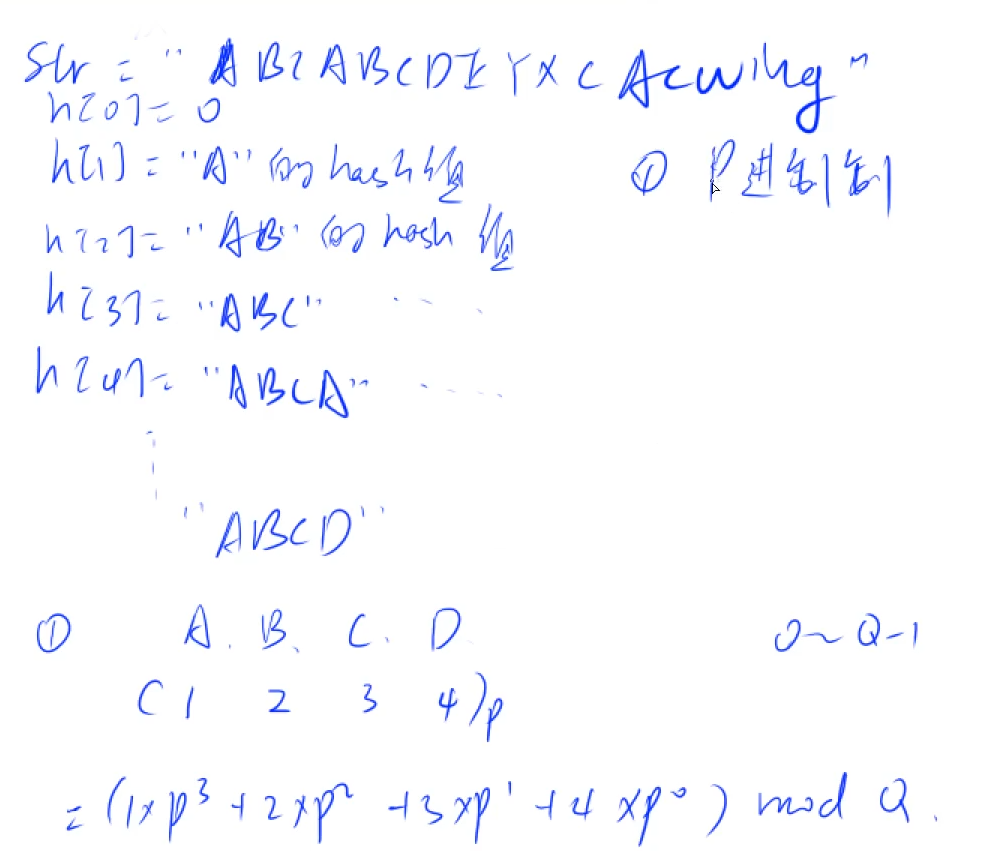 Str = "ABCABCDEYXCAcwing"
h[0] = 0
h[1] = "A" 的 hash 值
① P进制
h[2] = "AB" 的 hash 值
h[3] = "ABC" ...
h[4] = "ABCA" ....
"ABCD"
① A. B. C. D
0~Q-1
( 1 2 3 4 )p
= (1×p³ + 2×p² + 3×p¹ + 4×p⁰) mod Q.